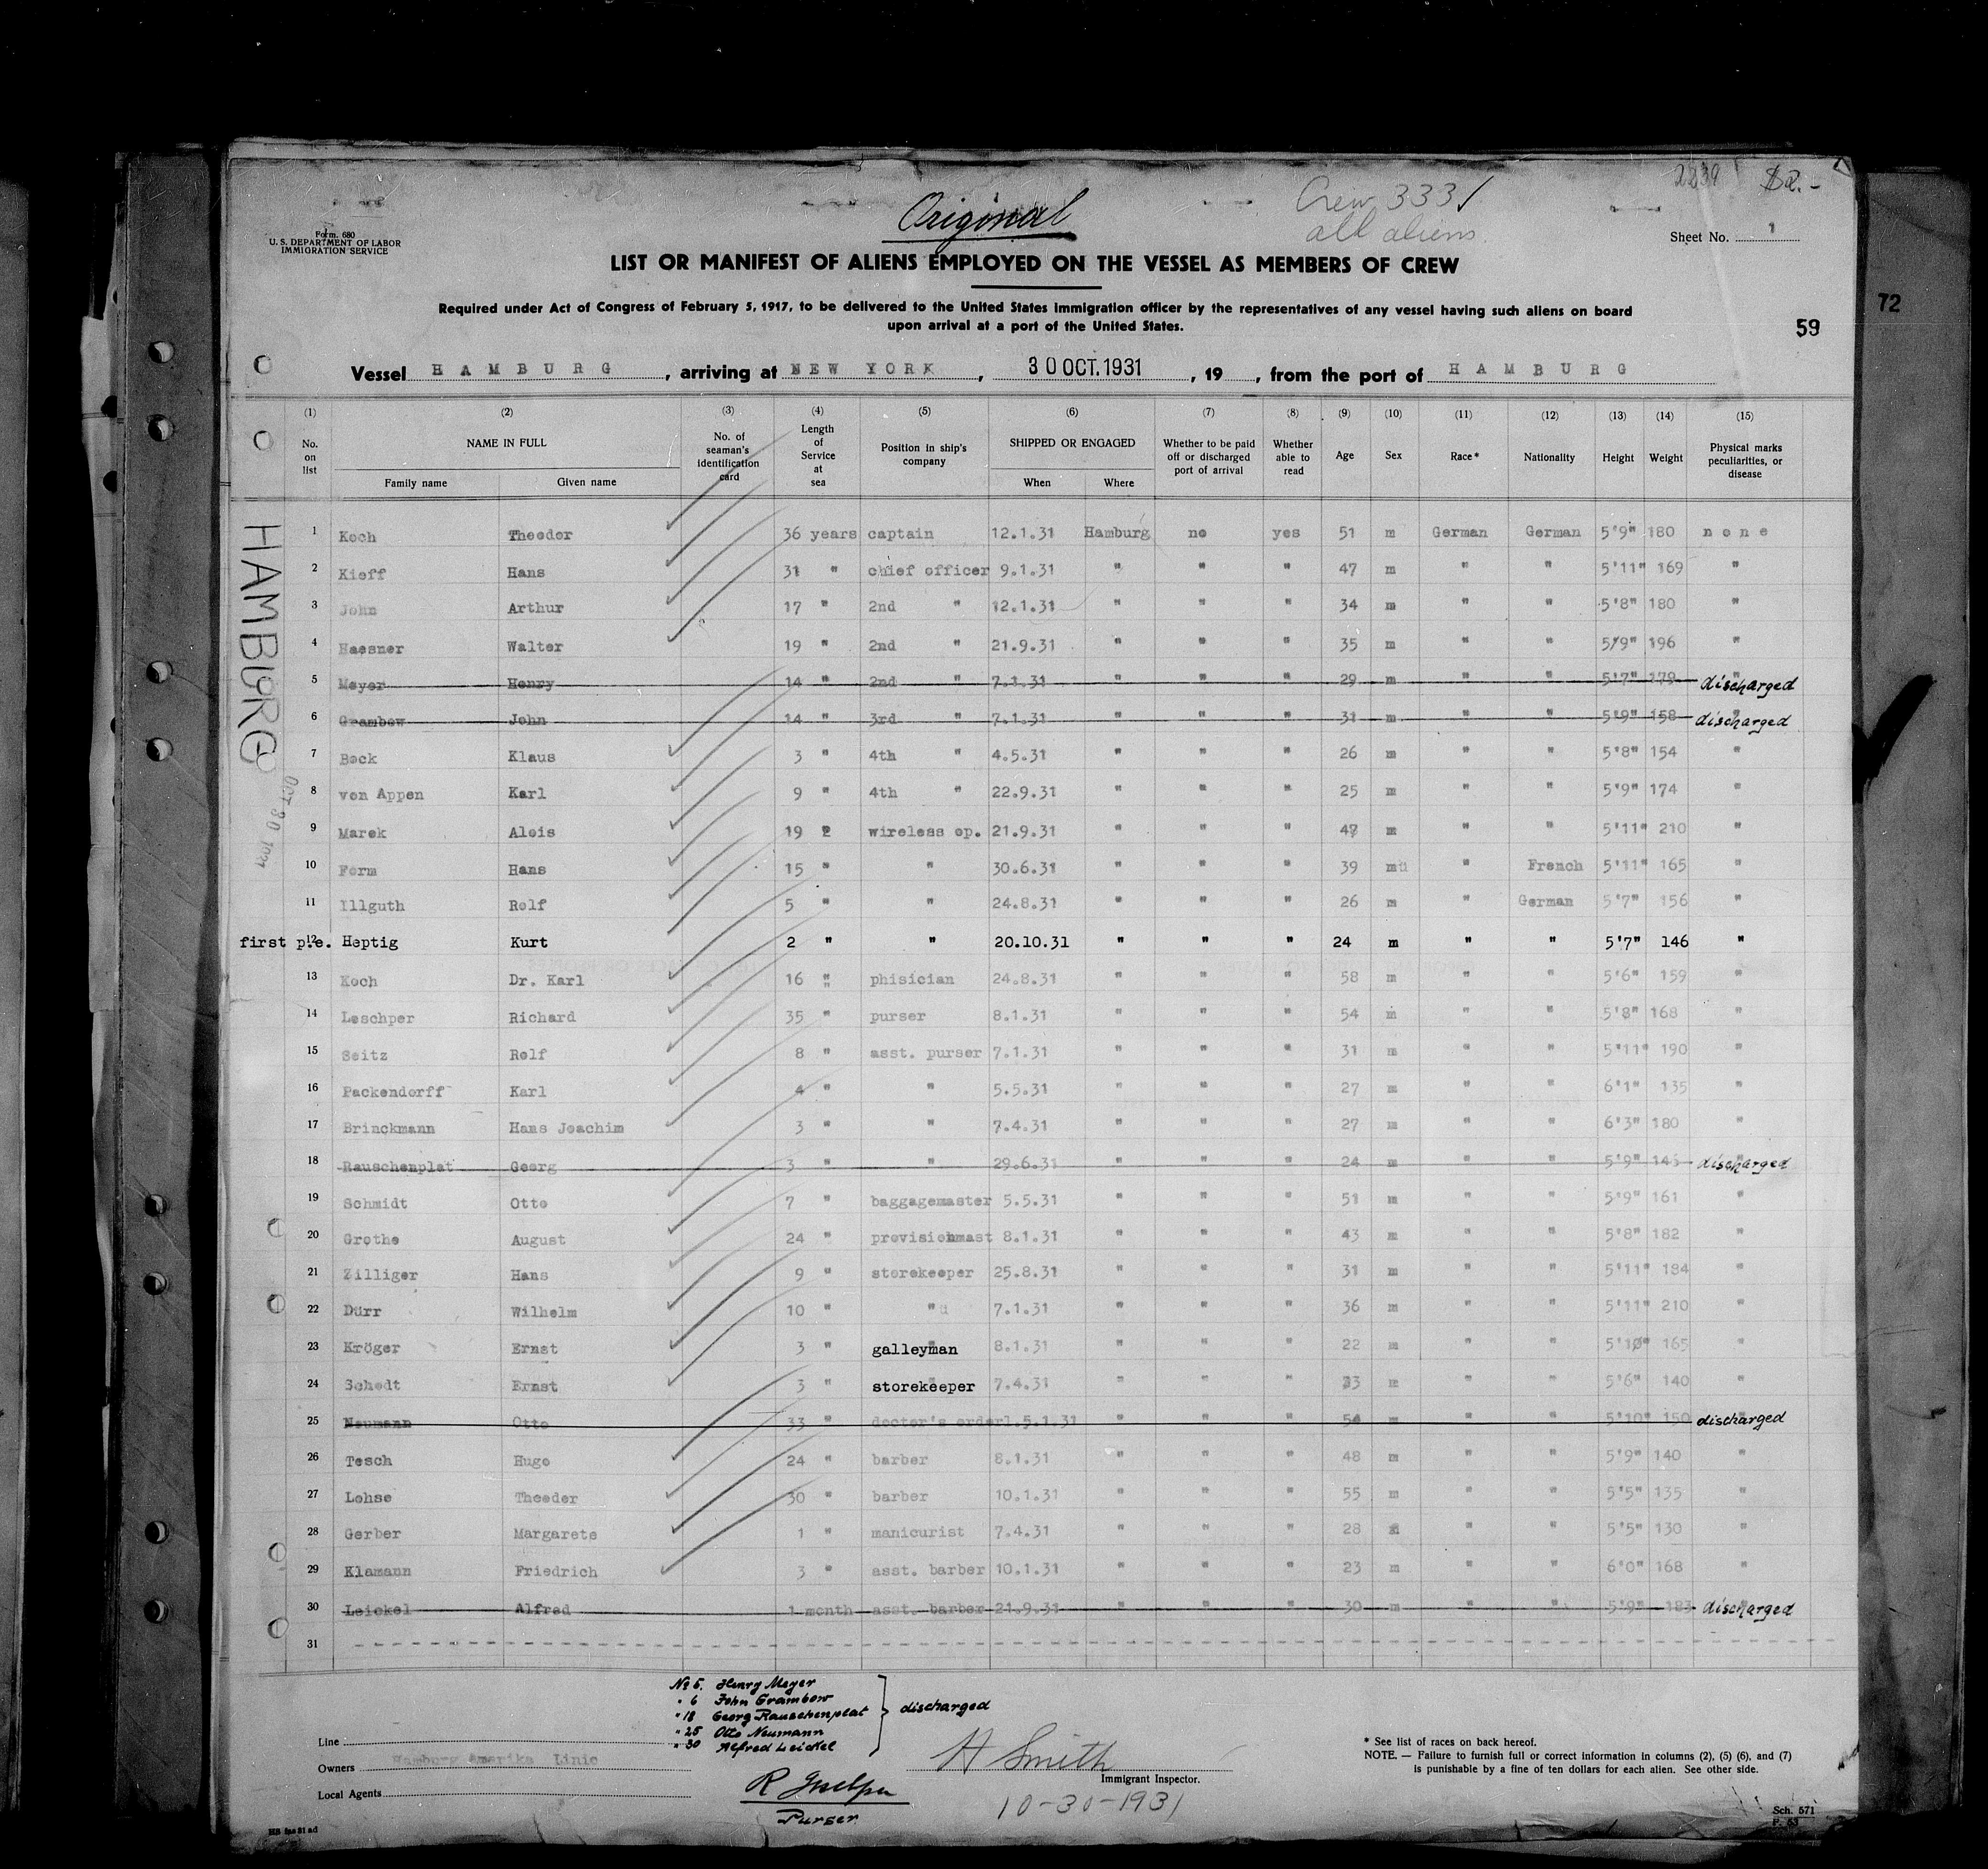 2839 $2.-
Original
Crew 333
all aliens.
Form 680
U. S. DEPARTMENT OF LABOR
IMMIGRATION SERVICE
Sheet No. 1
LIST OR MANIFEST OF ALIENS EMPLOYED ON THE VESSEL AS MEMBERS OF CREW
Required under Act of Congress of February 5, 1917, to be delivered to the United States Immigration officer by the representatives of any vessel having such aliens on board
upon arrival at a port of the United States.
72
59
Vessel HAMBURG, arriving at NEW YORK, 30 OCT. 1931, 19, from the port of HAMBURG
(1) (2) (3) (4) (5) (6) (7) (8) (9) (10) (11) (12) (13) (14) (15)
No. on list NAME IN FULL Family name Given name No. of seaman's identification card Length of Service at sea Position in ship's company SHIPPED OR ENGAGED When Where Whether to be paid off or discharged port of arrival Whether able to read Age Sex Race* Nationality Height Weight Physical marks peculiarities, or disease
HAMBURG
OCT 30 1931
1 Koch Theodor 36 years captain 12.1.31 Hamburg no yes 51 m German German 5'9" 180 none
2 Kieff Hans 31 " chief officer 9.1.31 " " " 47 m " " 5'11" 169 "
3 John Arthur 17 " 2nd " 12.1.31 " " " 34 m " " 5'8" 180 "
4 Haesner Walter 19 " 2nd " 21.9.31 " " " 35 m " " 5'9" 196 "
5 Meyer Henry 14 " 2nd " 7.1.31 " " " 29 m " " 5'7" 179 " discharged
6 Grambow John 14 " 3rd " 7.1.31 " " " 31 m " " 5'9" 158 " discharged
7 Bock Klaus 3 " 4th " 4.5.31 " " " 26 m " " 5'8" 154 "
8 von Appen Karl 9 " 4th " 22.9.31 " " " 25 m " " 5'9" 174 "
9 Marek Alois 19 " wireless op. 21.9.31 " " " 47 m " " 5'11" 210 "
10 Form Hans 15 " " 30.6.31 " " " 39 m " French 5'11" 165 "
11 Illguth Rolf 5 " " 24.8.31 " " " 26 m " German 5'7" 156 "
first p.e. 12 Heptig Kurt 2 " " 20.10.31 " " " 24 m " " 5'7" 146 "
13 Koch Dr. Karl 16 " phisician 24.8.31 " " " 58 m " " 5'6" 159 "
14 Leschper Richard 35 " purser 8.1.31 " " " 54 m " " 5'8" 168 "
15 Seitz Rolf 8 " asst. purser 7.1.31 " " " 31 m " " 5'11" 190 "
16 Packendorff Karl 4 " " 5.5.31 " " " 27 m " " 6'1" 135 "
17 Brinckmann Hans Joachim 3 " " 7.4.31 " " " 27 m " " 6'3" 180 "
18 Rauschenplat Georg 3 " " 29.6.31 " " " 24 m " " 5'9" 145 " discharged
19 Schmidt Otto 7 " baggagemaster 5.5.31 " " " 51 m " " 5'9" 161 "
20 Grothe August 24 " provisionmast 8.1.31 " " " 43 m " " 5'8" 182 "
21 Zilliger Hans 9 " storekeeper 25.8.31 " " " 31 m " " 5'11" 184 "
22 Dürr Wilhelm 10 " " 7.1.31 " " " 36 m " " 5'11" 210 "
23 Kröger Ernst 3 " galleyman 8.1.31 " " " 22 m " " 5'10" 165 "
24 Schodt Ernst 3 " storekeeper 7.4.31 " " " 23 m " " 5'6" 140 "
25 Neumann Otto 33 " doctor's orderl. 5.1.31 " " " 54 m " " 5'10" 150 " discharged
26 Tesch Hugo 24 " barber 8.1.31 " " " 48 m " " 5'9" 140 "
27 Lohse Theodor 30 " barber 10.1.31 " " " 55 m " " 5'5" 135 "
28 Gerber Margarete 1 " manicurist 7.4.31 " " " 28 " " 5'5" 130 "
29 Klamann Friedrich 3 " asst. barber 10.1.31 " " " 23 m " " 6'0" 168 "
30 Leickel Alfred 1 month asst. barber 21.9.31 " " " 30 m " " 5'9" 183 " discharged
31
No 5. Henry Meyer
" 6 John Grambow
" 18 Georg Rauschenplat
" 25 Otto Neumann
" 30 Alfred Leickel
discharged
Line
Owners Hamburg Amerika Linie
Local Agents
Purser
H Smith
Immigrant Inspector.
10-30-1931
* See list of races on back hereof.
NOTE. — Failure to furnish full or correct information in columns (2), (5) (6), and (7)
is punishable by a fine of ten dollars for each alien. See other side.
Sch. 571